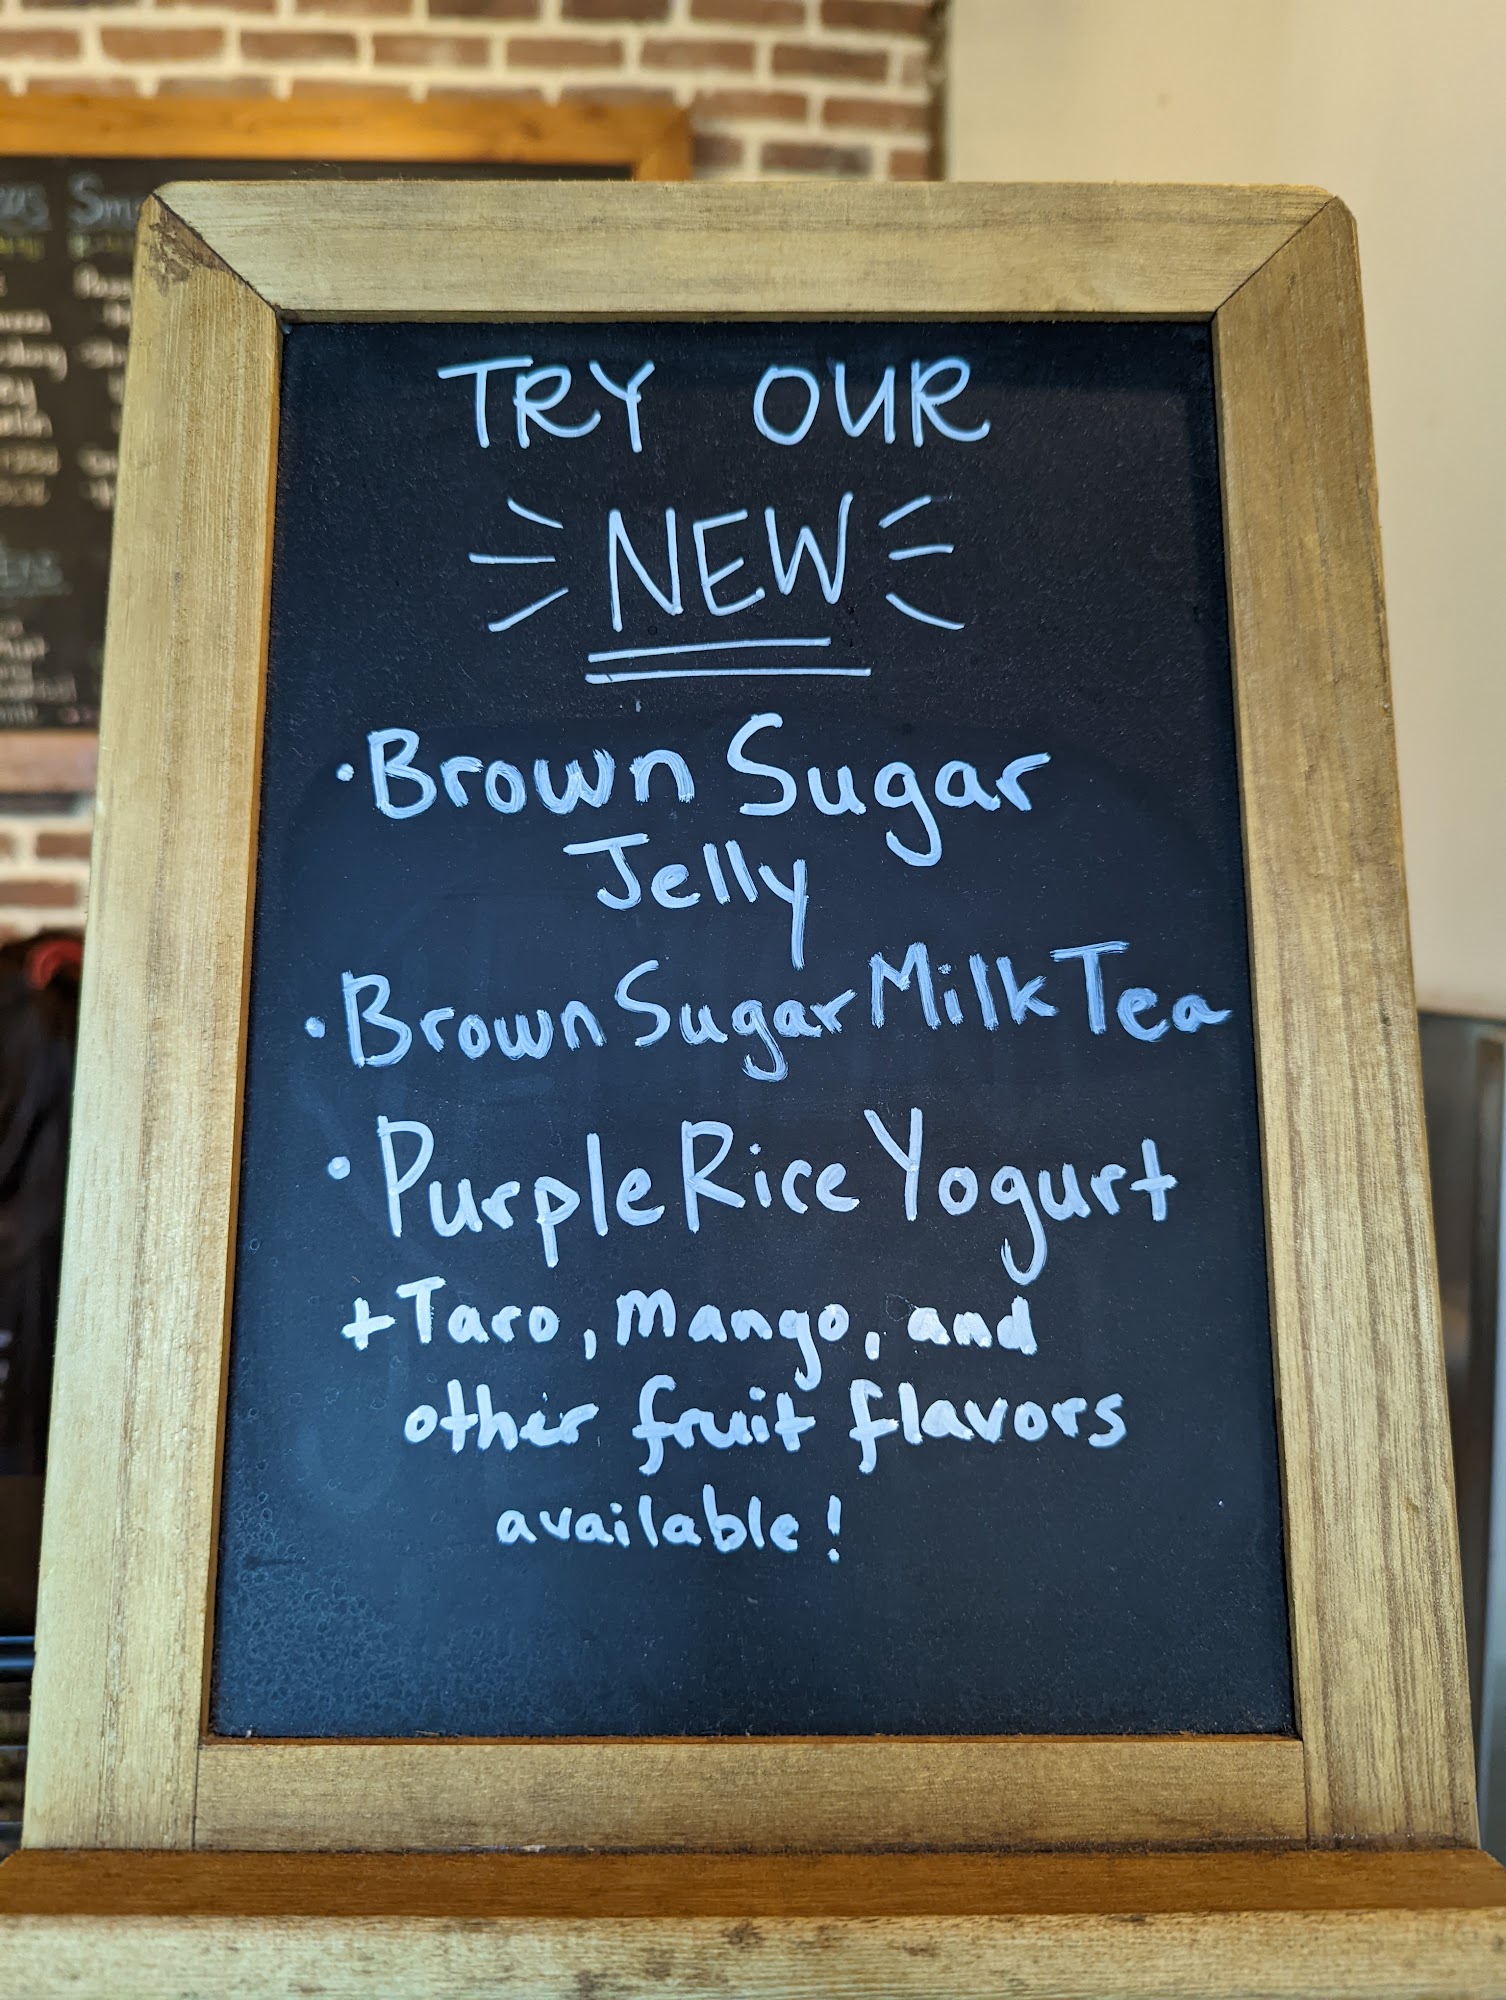 TRY OUR
NEW
· Brown Sugar
Jelly
· Brown Sugar Milk Tea
· Purple Rice Yogurt
+ Taro, Mango, and
other fruit flavors
available!